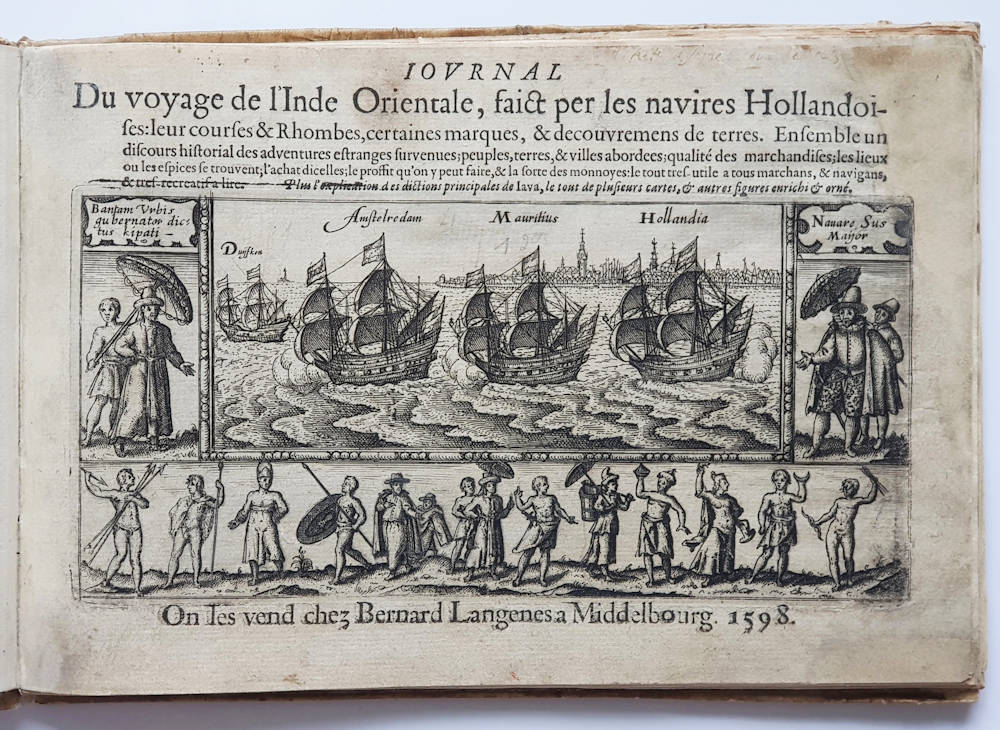 IOVRNAL
Du voyage de l'Inde Orientale, faict per les navires Hollandoi-
ſes: leur courſes & Rhombes, certaines marques, & decouvremens de terres. Enſemble un
diſcours hiſtorial des adventures eſtranges ſurvenues; peuples, terres, & villes abordees; qualité des marchandiſes; les lieux
ou les eſpices ſe trouvent; l'achat dicelles; le proffit qu'on y peut faire, & la ſorte des monnoyes: le tout treſ utile a tous marchans, & navigans,
& treſ-recreatif a lire. Plus l'explication des dictions principales de Iava, le tout de pluſieurs cartes, & autres figures enrichi & orné.
Bantam Vrbis
gubernator dic=
tus kipati
Duyfken
Amſtelredam
Mauritius
Hollandia
Navare Sus
Maijor
On les vend chez Bernard Langenes a Middelbourg. 1598.